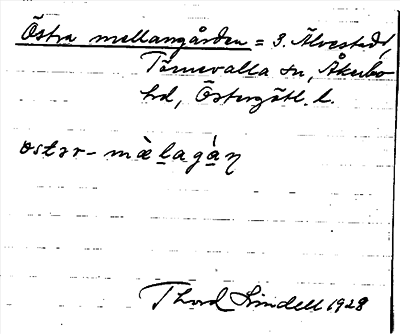 Östra mellangården = 3. Älvestad,
Törnevalla sn, Åkerbo
hd, Östergötl. l.
ostər-mὰl̲agá̲ṇ
Thord Lindell 1928